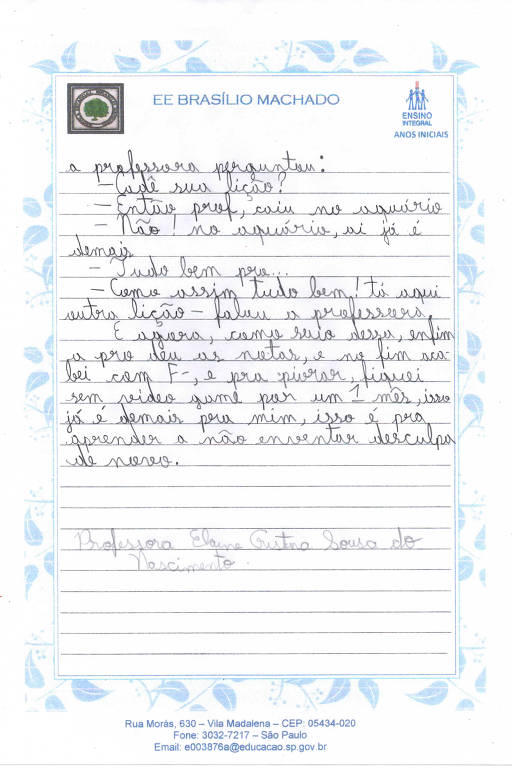 EE BRASÍLIO MACHADO
ENSINO
INTEGRAL
ANOS INICIAIS
a professora perguntou:
– Cadê sua lição?
– Então prof, caiu no aquário
– Não! no aquário, ai já é
demais
– Tudo bem pro...
– Como assim, tudo bem! tá aqui
outra lição – falou a professora.
E agora, como saio dessa, enfim
a pro deu as notas, e no fim aca-
bei com F-, e pra piorar, fiquei
sem video game por um 1 mês, isso
já é demais pra mim, isso é pra
aprender a não enventar desculpa
de novo.
Professora Elaine Cristina Sousa do
Nascimento.
Rua Morás, 630 – Vila Madalena – CEP: 05434-020
Fone: 3032-7217 – São Paulo
Email: e003876a@educacao.sp.gov.br